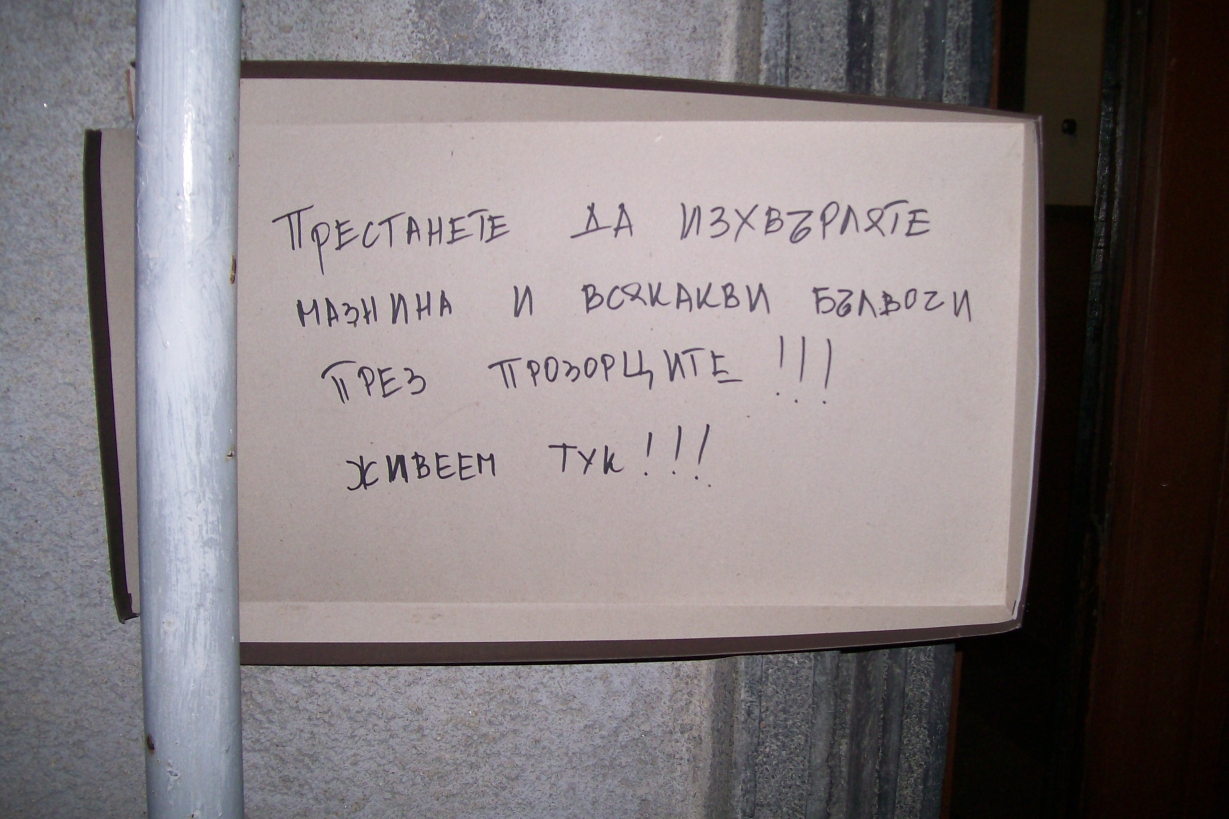 Престанете да изхвърляте
мазнина и всякакви бълвочи
през прозорците !!!
живеем тук!!!